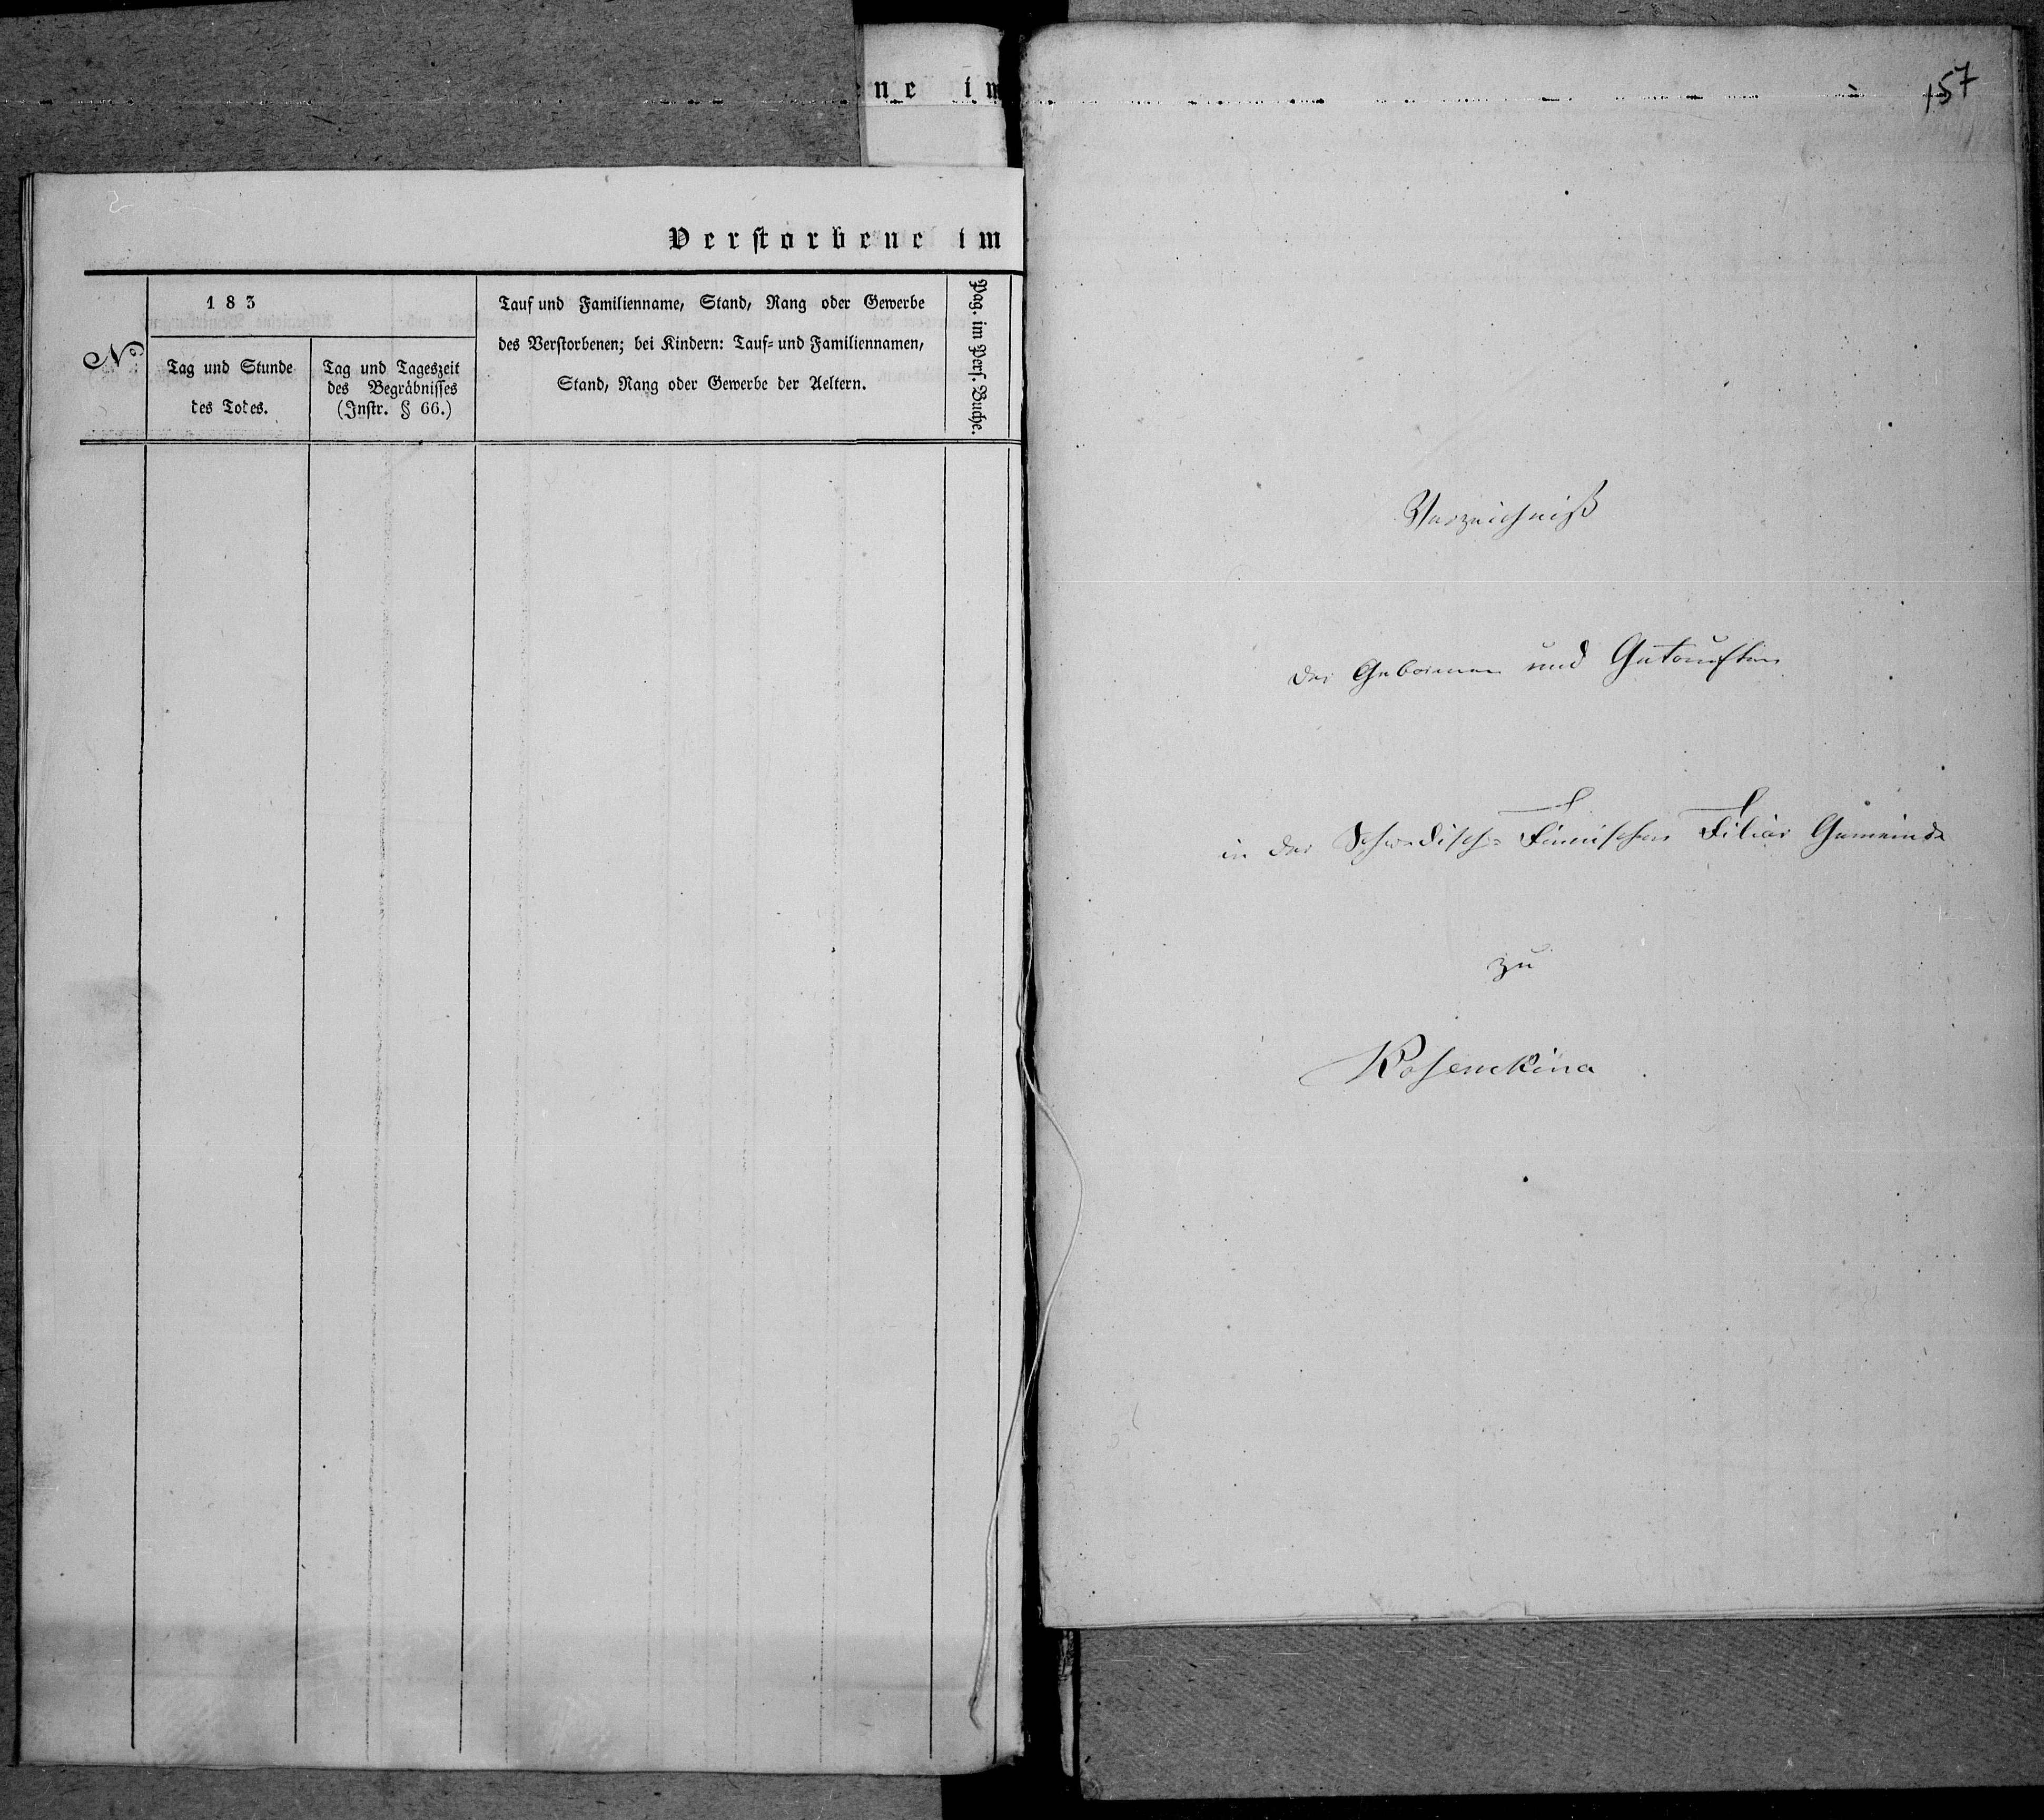 ne im
Verstorbene im
No.
183
Tag und Stunde
des Todes.
Tag und Tageszeit
des Begräbnisses
(Instr. § 66.)
Tauf und Familienname, Stand, Rang oder Gewerbe
des Verstorbenen; bei Kindern: Tauf- und Familiennamen,
Stand, Rang oder Gewerbe der Aeltern.
Pag. im Pers. Buche.
157
Verzeichniß
der Gebornen und Getauften
in der Schwedisch-Finnischen Filial Gemeinde
zu